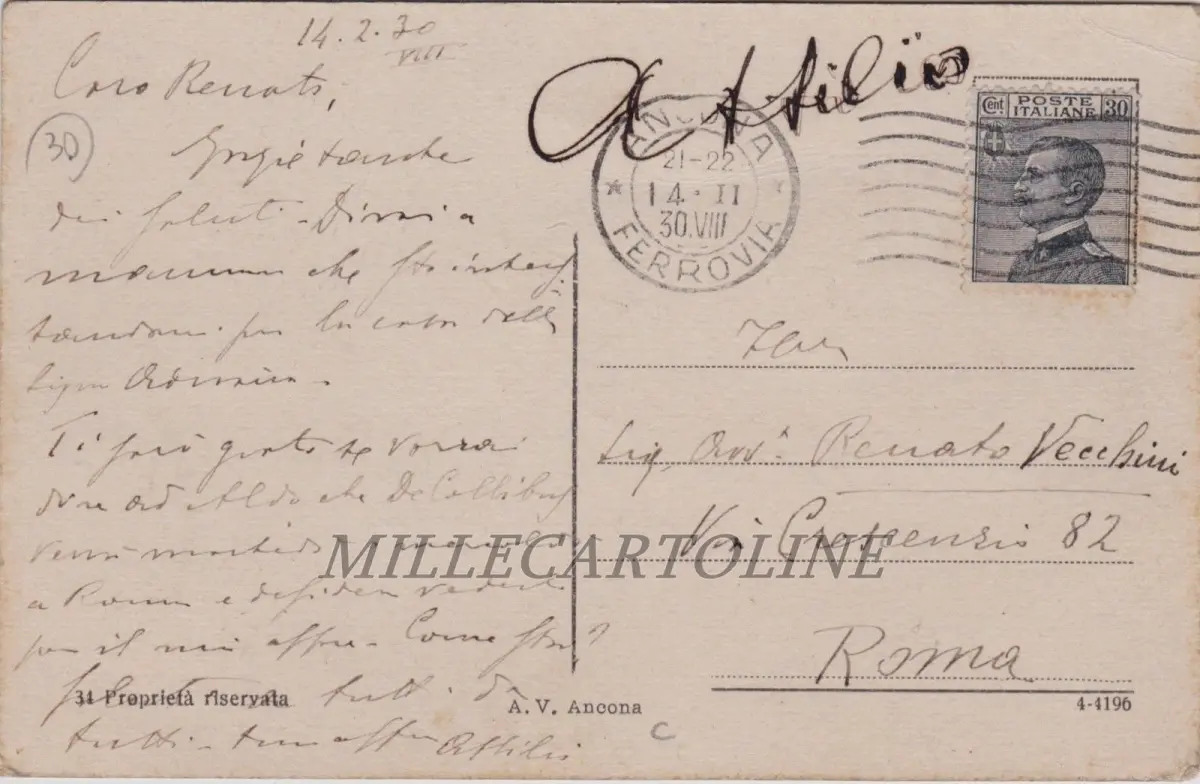 14.2.30
VIII
Attilio
Caro Renato,
30
Grazie tante
dei saluti. Dirai a
mamma che sto
per la casa della
Ti sarò grato se vorrai
dire ad Aldo che De Collibus
verrà martedì
a Roma e desidera vederlo
per il mio affare. Come stai?
tutti da
tutti
Attilio
Cent. POSTE ITALIANE 30
ANCONA
21-22
14·II
30.VIII
FERROVIA
Sig. Avv. Renato Vecchini
Via Crescenzio 82
Roma
MILLECARTOLINE
34 Proprietà riservata
A. V. Ancona
4-4196
C